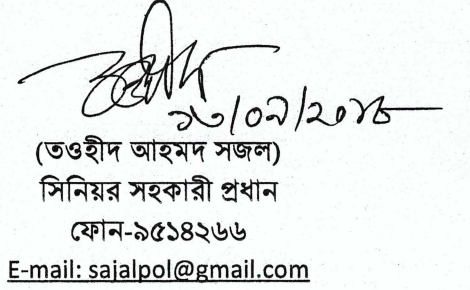 তওহীদ
১৩/০৯/২০১৮
(তওহীদ আহমদ সজল)
সিনিয়র সহকারী প্রধান
ফোন-৯৫১৪২৬৬
E-mail: sajalpol@gmail.com